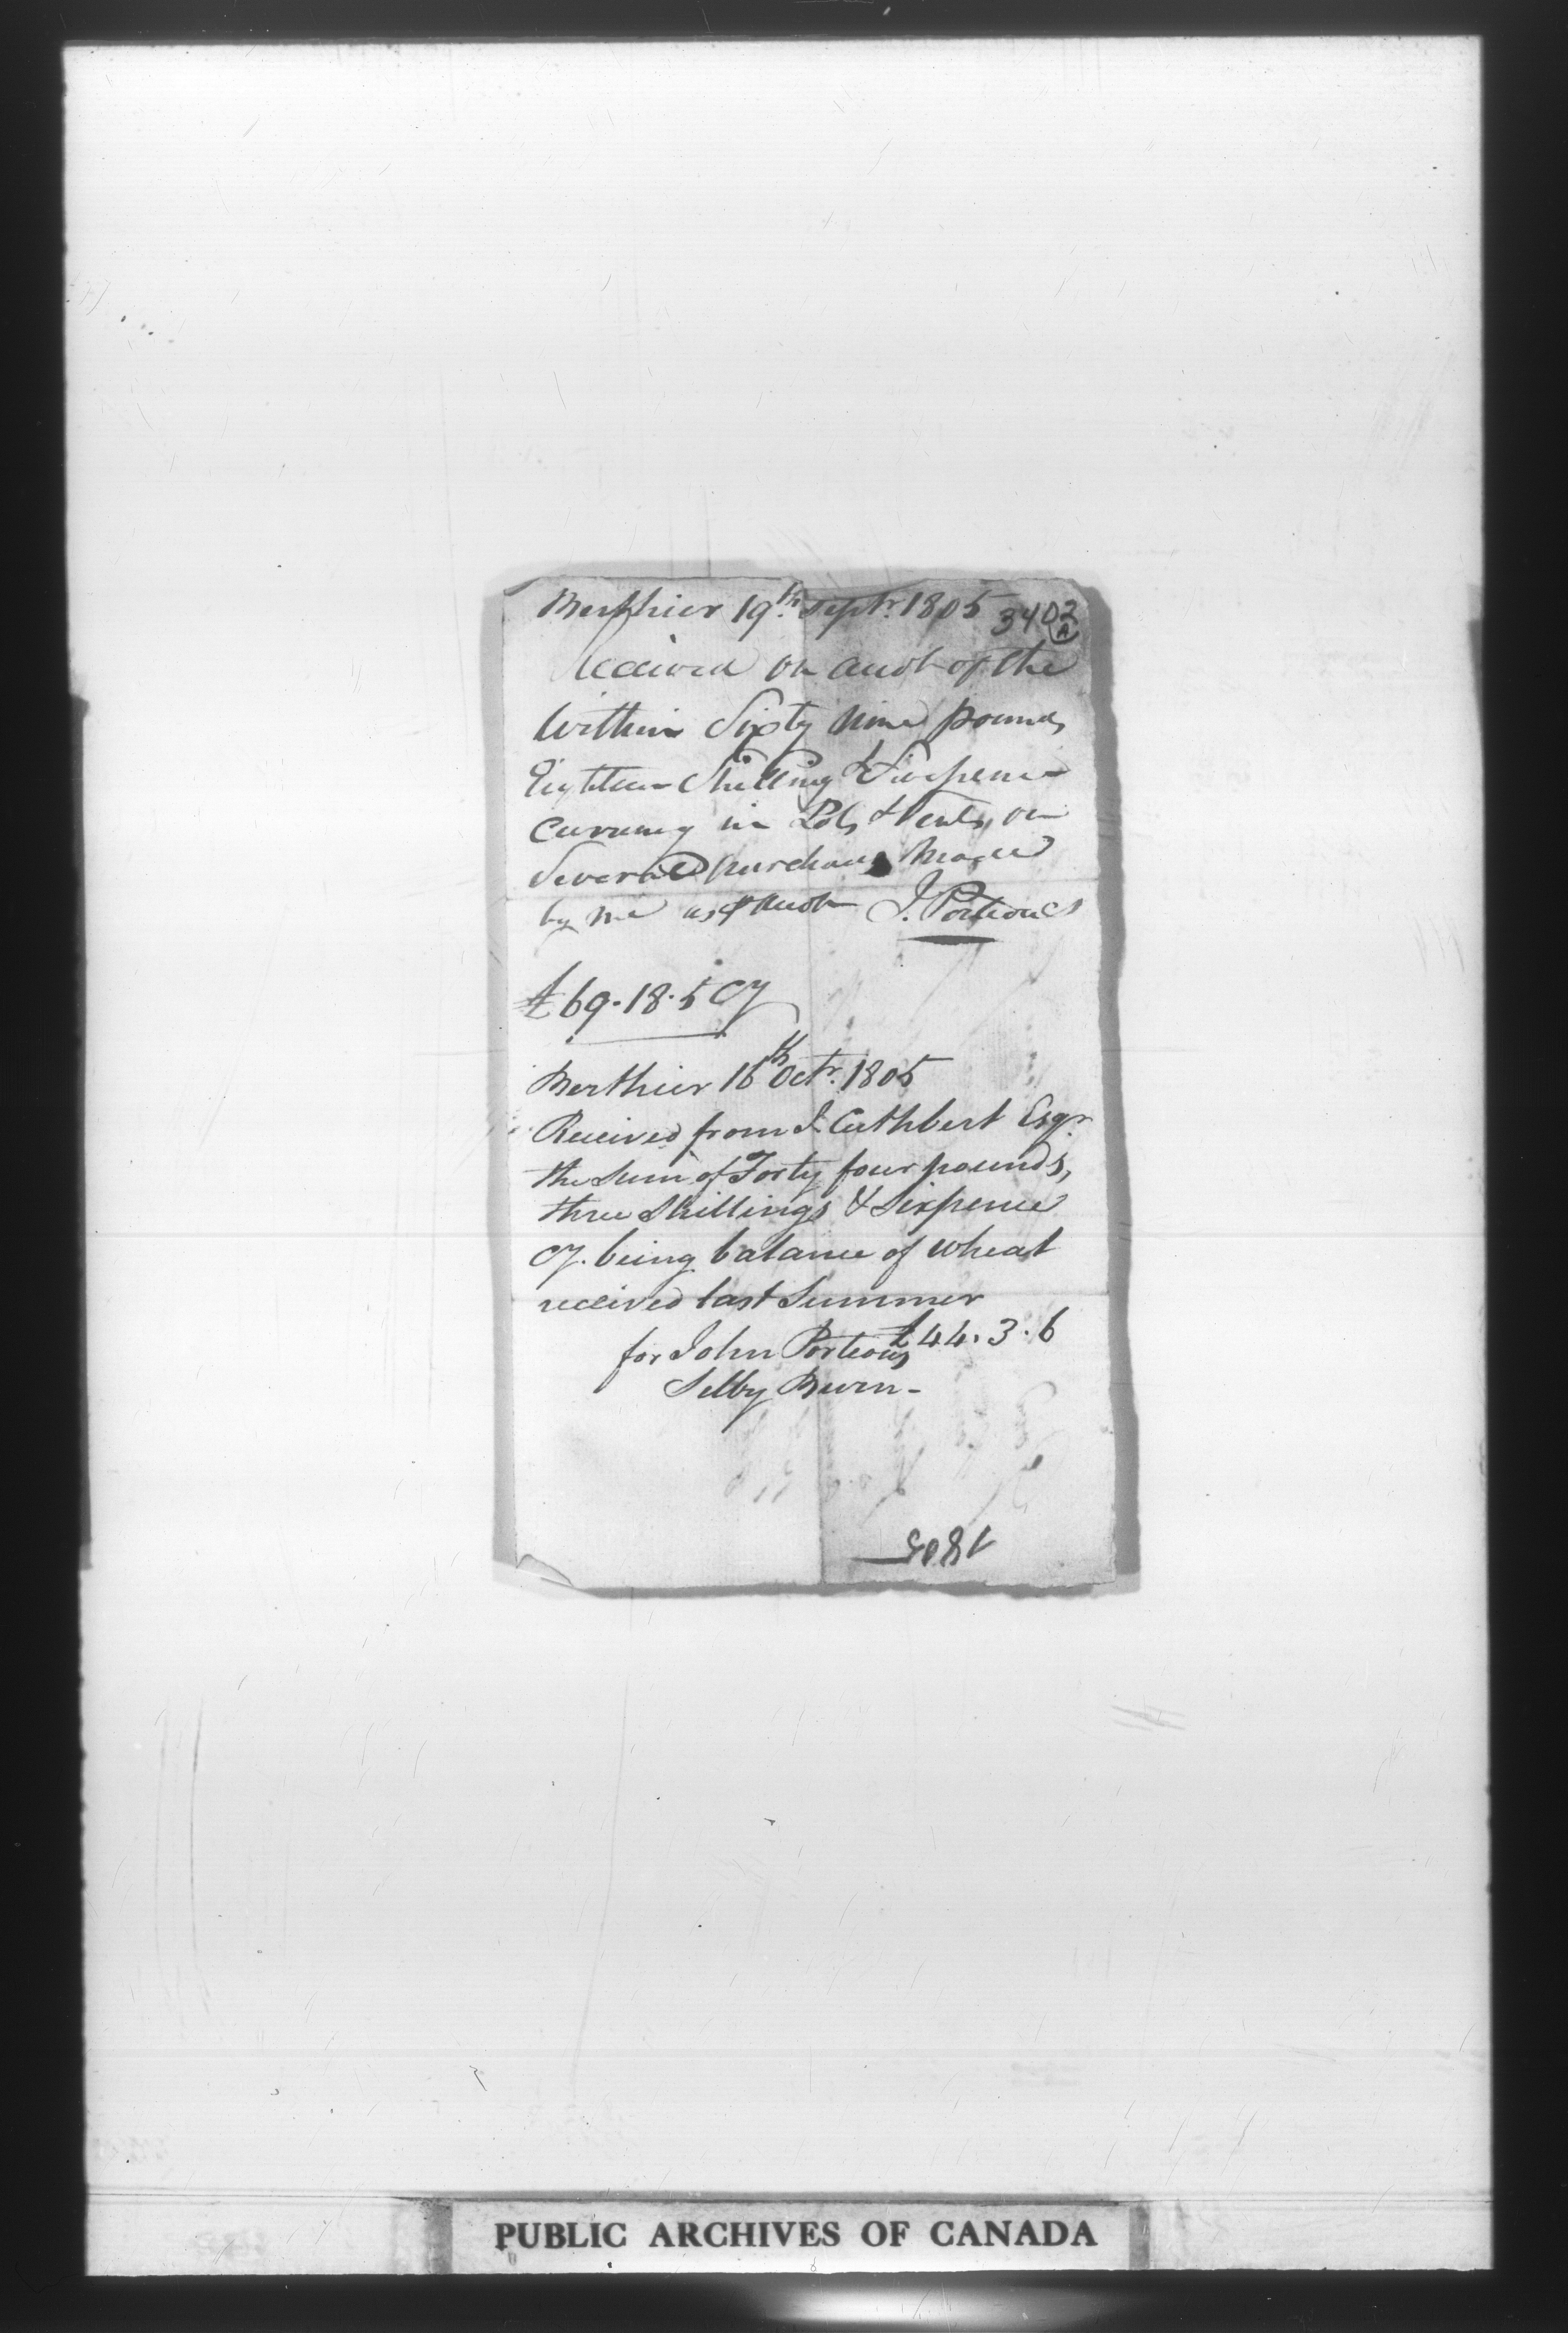 Berthier 19th Septr. 1805 3402
A
Received on Acco't of the
Within Sixty Nine pounds
Eighteen Shilling & Fivepence
Currency in Lots & Vents, on
Several purchases Made
by me as p Acco't J. Porteous
£69.18.5 Cy
Berthier 16th Octr. 1805
Received from J. Cuthbert Esqr.
the Sum of Forty four pounds,
three Shillings & Sixpence
Cy. being balance of Wheat
received last Summer
£44.3.6
for John Porteous
Selby Burn-
1805
PUBLIC ARCHIVES OF CANADA